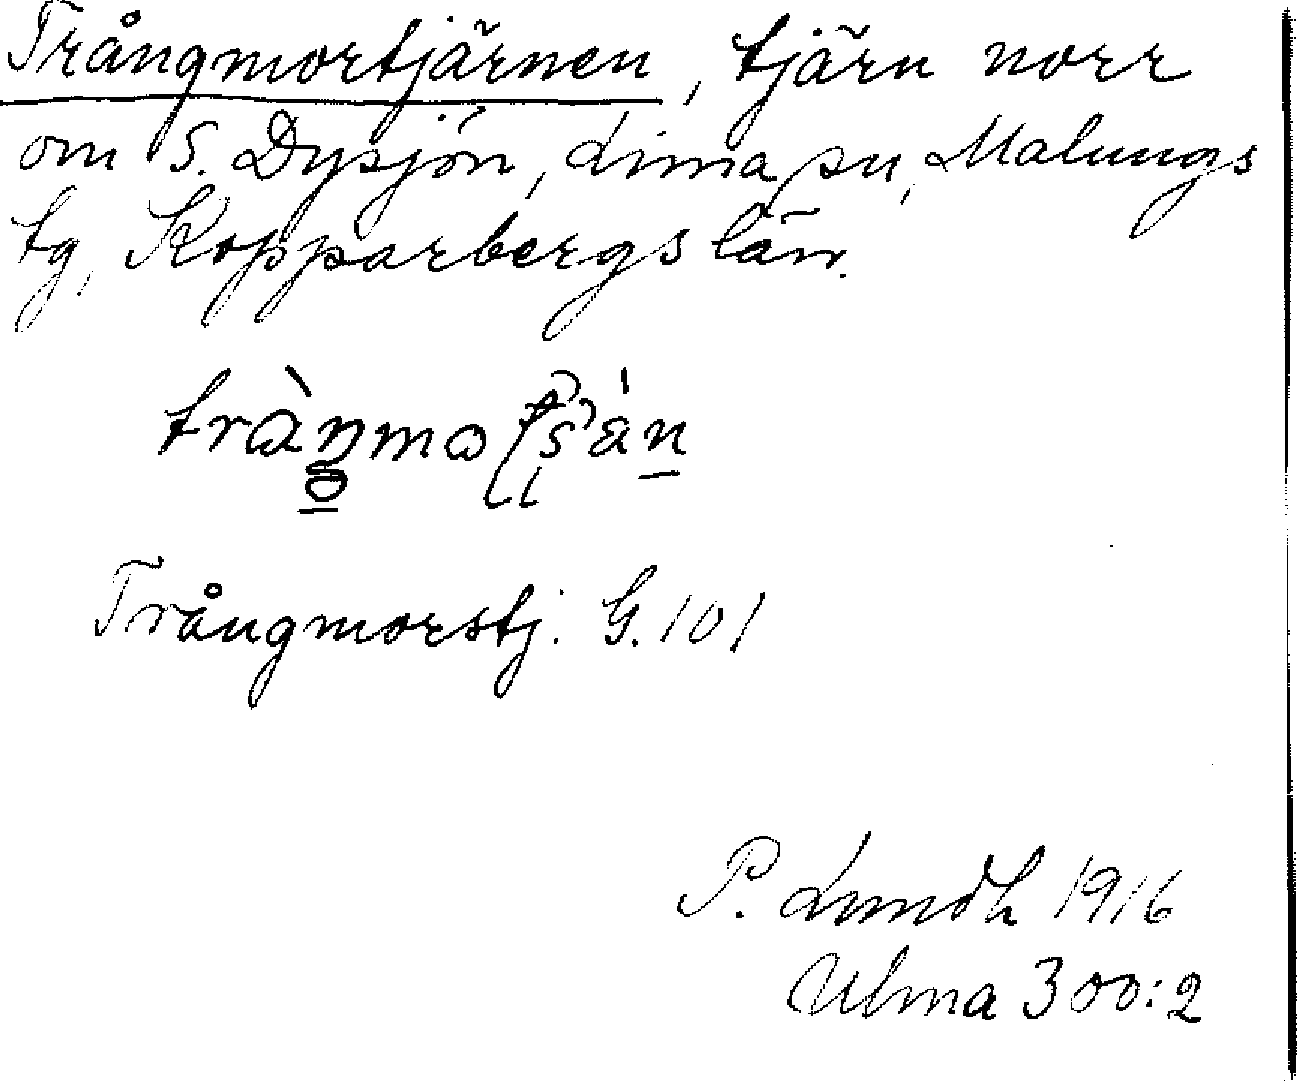 Trångmortjärnen, tjärn norr
om S. Dysjön, Lima sn, Malungs
tg, Kopparbergs län.
Trångmorstj. G. 101
P. Lundh 1916
Ulma 300:2